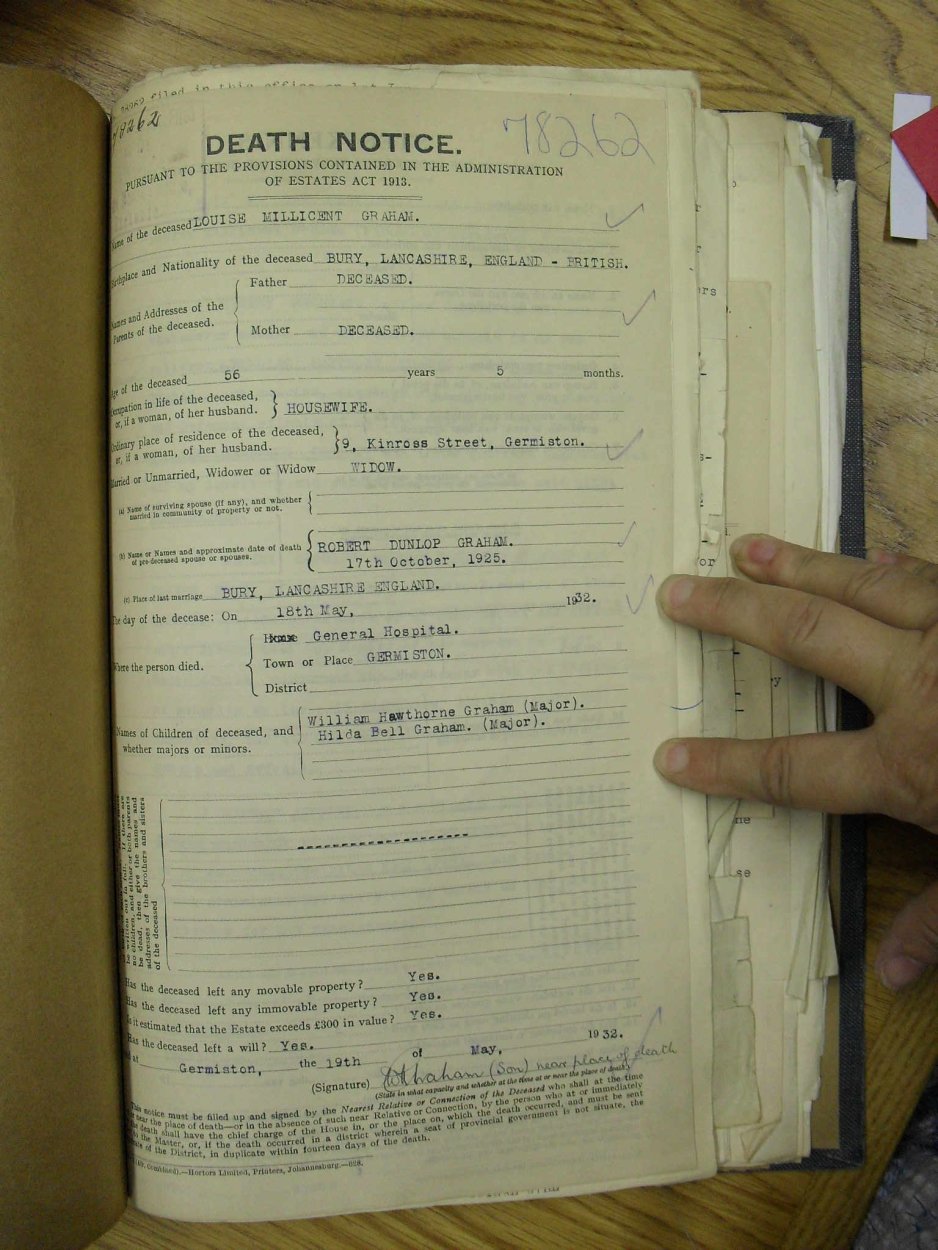 filed in this office on 1st
78262
78262
DEATH NOTICE.
PURSUANT TO THE PROVISIONS CONTAINED IN THE ADMINISTRATION
OF ESTATES ACT 1913.
Name of the deceased LOUISE MILLICENT GRAHAM.
Birthplace and Nationality of the deceased BURY, LANCASHIRE, ENGLAND - BRITISH.
Names and Addresses of the
Parents of the deceased.
Father DECEASED.
Mother DECEASED.
Age of the deceased 56 years 5 months.
Occupation in life of the deceased,
or, if a woman, of her husband. HOUSEWIFE.
Ordinary place of residence of the deceased,
or, if a woman, of her husband. 9, Kinross Street, Germiston.
Married or Unmarried, Widower or Widow WIDOW.
(a) Name of surviving spouse (if any), and whether
married in community of property or not.
(b) Name or Names and approximate date of death
of pre-deceased spouse or spouses.
ROBERT DUNLOP GRAHAM.
17th October, 1925.
(c) Place of last marriage BURY, LANCASHIRE ENGLAND.
The day of the decease: On 18th May, 1932.
Where the person died.
House General Hospital.
Town or Place GERMISTON.
District
Names of Children of deceased, and
whether majors or minors.
William Hawthorne Graham (Major).
Hilda Bell Graham. (Major).
If there are
no children, and either or both parents
be dead, then give the names and
addresses of the brothers and sisters
of the deceased
Has the deceased left any movable property? Yes.
Has the deceased left any immovable property? Yes.
Is it estimated that the Estate exceeds £300 in value? Yes.
Has the deceased left a will? Yes.
Dated at Germiston, the 19th of May, 1932.
(Signature) WHGraham (Son) near place of death
(State in what capacity and whether at the time at or near the place of death)
This notice must be filled up and signed by the Nearest Relative or Connection of the Deceased who shall at the time
or near the place of death—or in the absence of such near Relative or Connection, by the person who at or immediately
the death shall have the chief charge of the House in, or the place on, which the death occurred, and must be sent
to the Master, or, if the death occurred in a district wherein a seat of provincial government is not situate, the
of the District, in duplicate within fourteen days of the death.
Combined).—Hortors Limited, Printers, Johannesburg.—628.